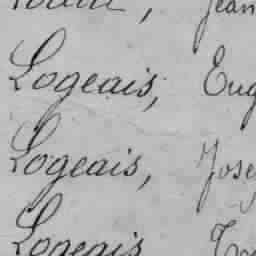 Jean
Logeais, Eug
Logeais, Jose
Logeais